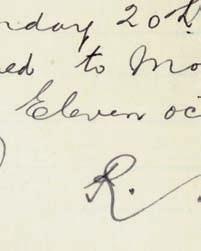 nday 20th
ed to Mo
Eleven oc
R.